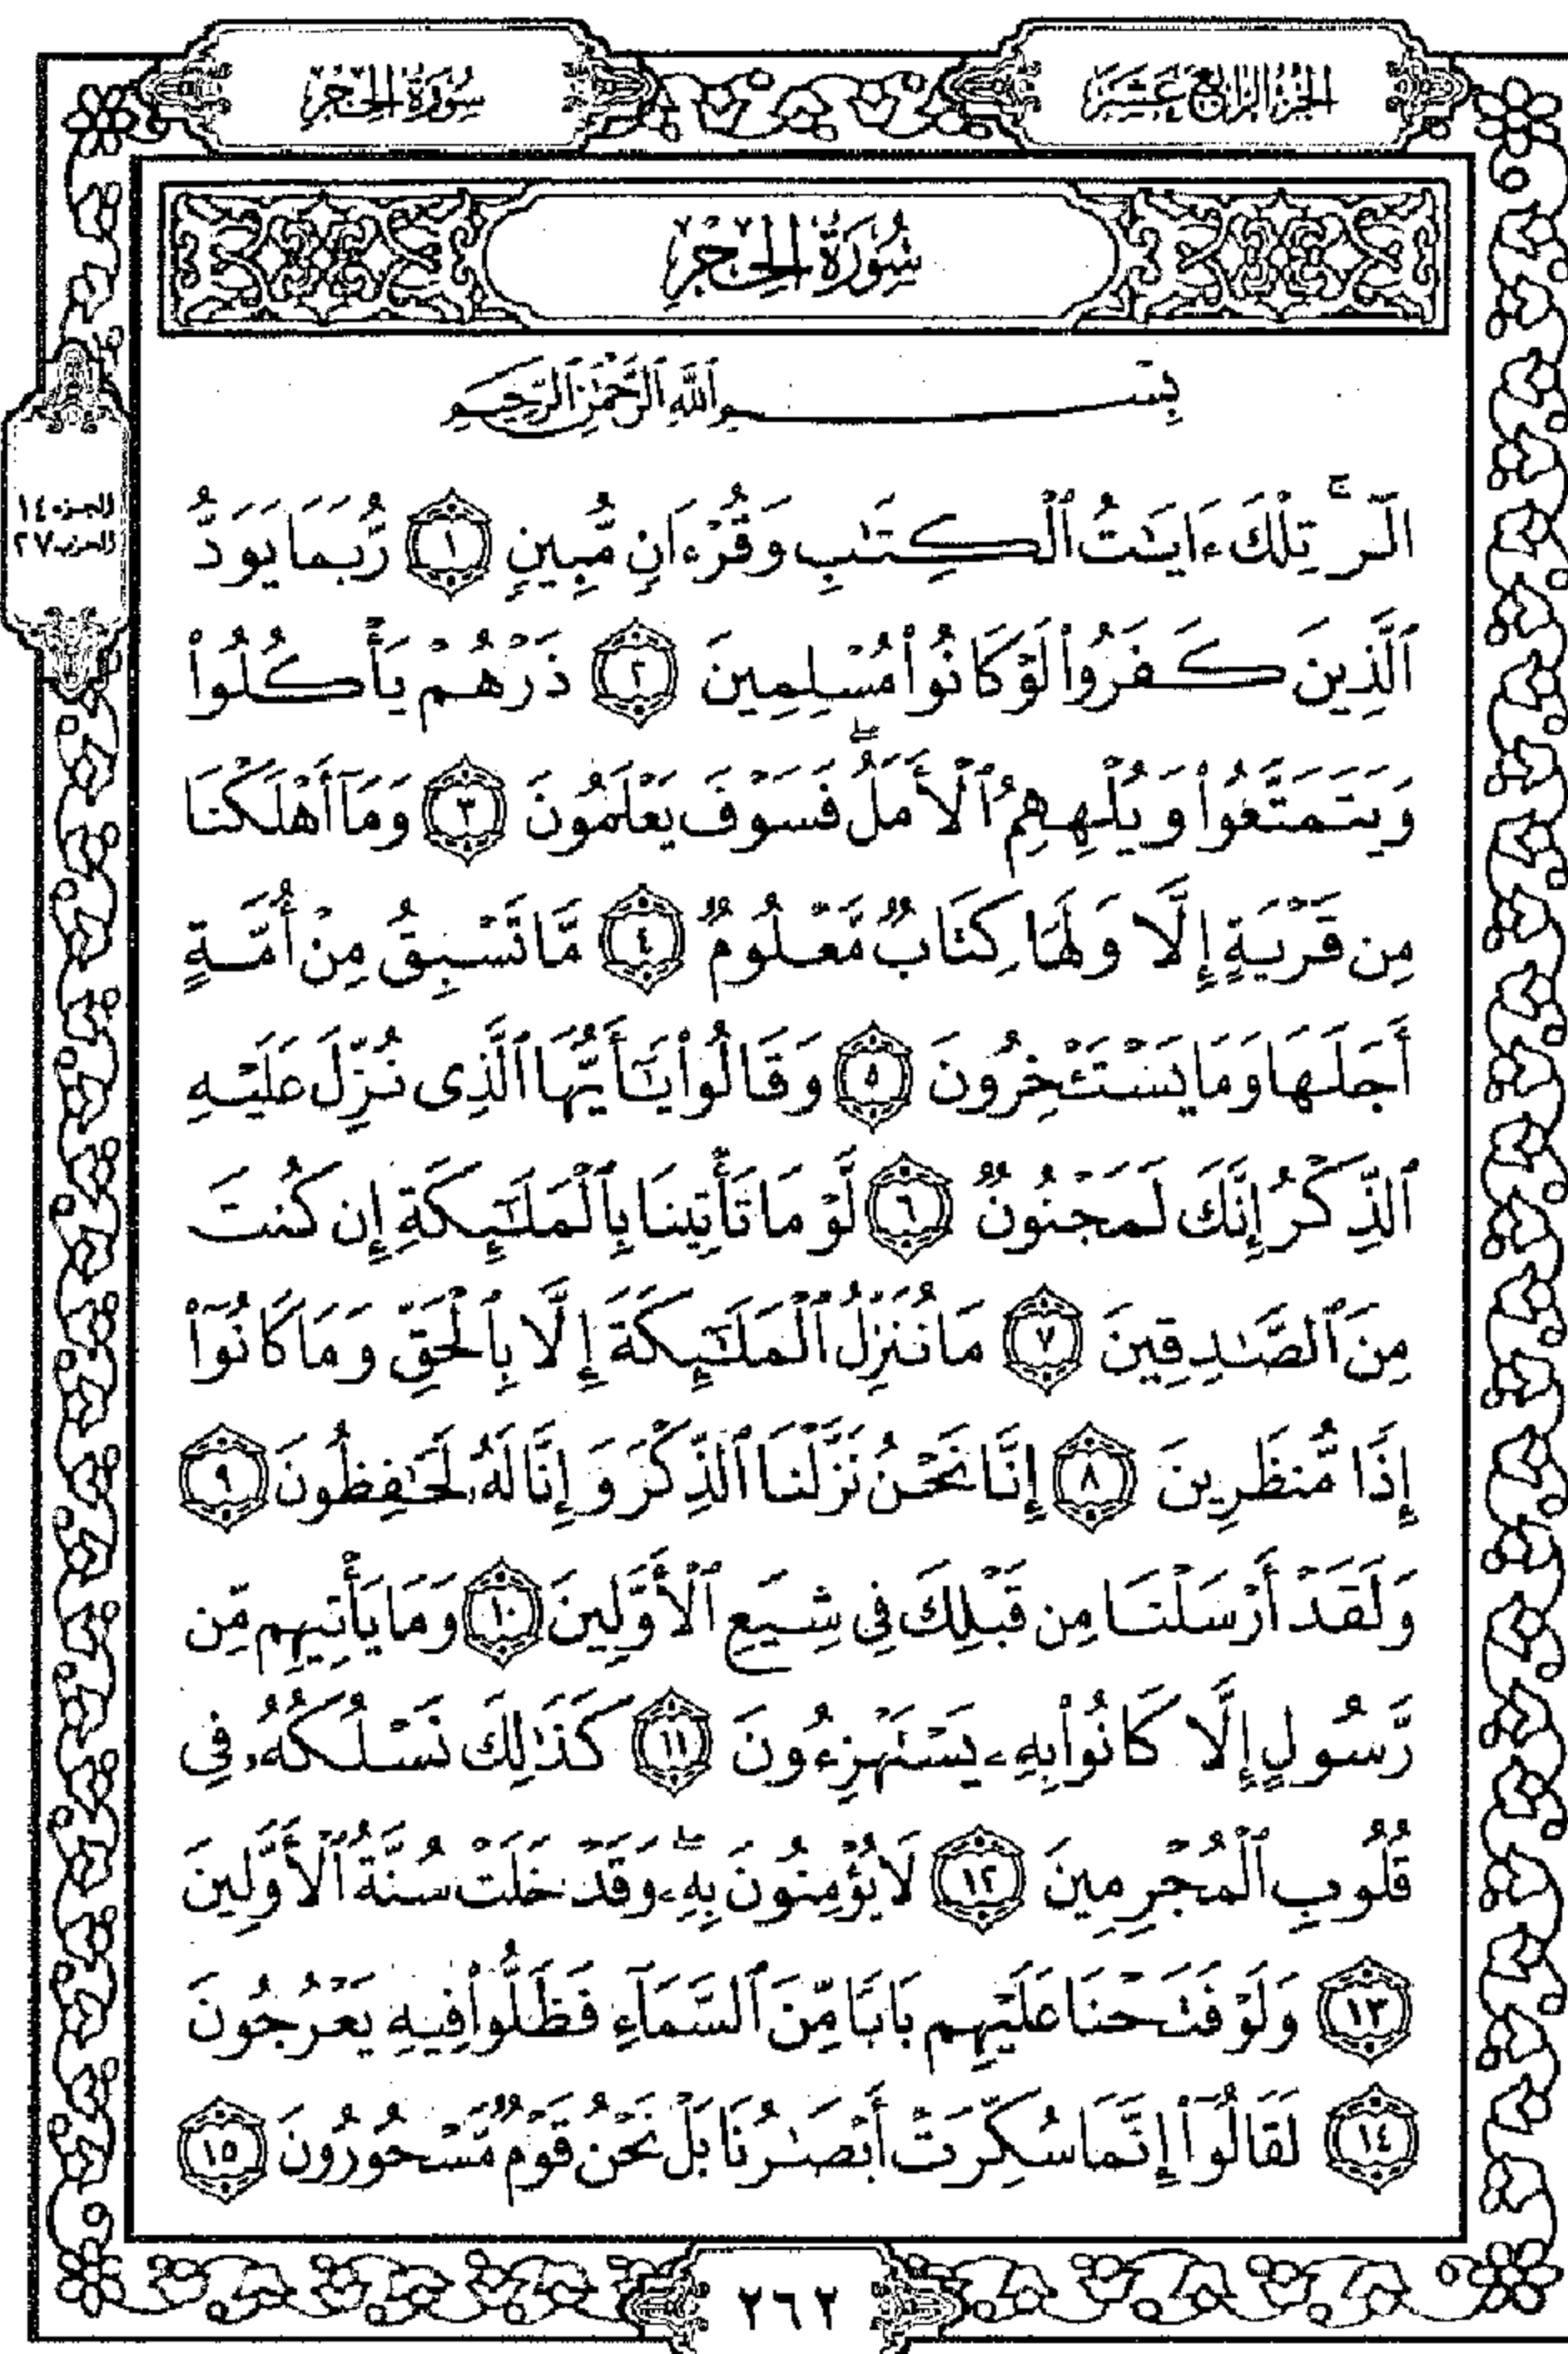 الجزء الرابع عشر
سورة الحجر
سُورَةُ الحِجْرِ
بِسْمِ ٱللَّهِ ٱلرَّحْمَٰنِ ٱلرَّحِيمِ
الجزء ١٤
الحزب ٢٧
الٓرۚ تِلْكَ ءَايَٰتُ ٱلْكِتَٰبِ وَقُرْءَانٍ مُّبِينٍ ١ رُّبَمَا يَوَدُّ
ٱلَّذِينَ كَفَرُوا۟ لَوْ كَانُوا۟ مُسْلِمِينَ ٢ ذَرْهُمْ يَأْكُلُوا۟
وَيَتَمَتَّعُوا۟ وَيُلْهِهِمُ ٱلْأَمَلُۖ فَسَوْفَ يَعْلَمُونَ ٣ وَمَآ أَهْلَكْنَا
مِن قَرْيَةٍ إِلَّا وَلَهَا كِتَابٌ مَّعْلُومٌ ٤ مَّا تَسْبِقُ مِنْ أُمَّةٍ
أَجَلَهَا وَمَا يَسْتَـْٔخِرُونَ ٥ وَقَالُوا۟ يَٰٓأَيُّهَا ٱلَّذِى نُزِّلَ عَلَيْهِ
ٱلذِّكْرُ إِنَّكَ لَمَجْنُونٌ ٦ لَّوْ مَا تَأْتِينَا بِٱلْمَلَٰٓئِكَةِ إِن كُنتَ
مِنَ ٱلصَّٰدِقِينَ ٧ مَا نُنَزِّلُ ٱلْمَلَٰٓئِكَةَ إِلَّا بِٱلْحَقِّ وَمَا كَانُوٓا۟
إِذًا مُّنظَرِينَ ٨ إِنَّا نَحْنُ نَزَّلْنَا ٱلذِّكْرَ وَإِنَّا لَهُۥ لَحَٰفِظُونَ ٩
وَلَقَدْ أَرْسَلْنَا مِن قَبْلِكَ فِى شِيَعِ ٱلْأَوَّلِينَ ١٠ وَمَا يَأْتِيهِم مِّن
رَّسُولٍ إِلَّا كَانُوا۟ بِهِۦ يَسْتَهْزِءُونَ ١١ كَذَٰلِكَ نَسْلُكُهُۥ فِى
قُلُوبِ ٱلْمُجْرِمِينَ ١٢ لَا يُؤْمِنُونَ بِهِۦۖ وَقَدْ خَلَتْ سُنَّةُ ٱلْأَوَّلِينَ
١٣ وَلَوْ فَتَحْنَا عَلَيْهِم بَابًا مِّنَ ٱلسَّمَآءِ فَظَلُّوا۟ فِيهِ يَعْرُجُونَ
١٤ لَقَالُوٓا۟ إِنَّمَا سُكِّرَتْ أَبْصَٰرُنَا بَلْ نَحْنُ قَوْمٌ مَّسْحُورُونَ ١٥
٢٦٢